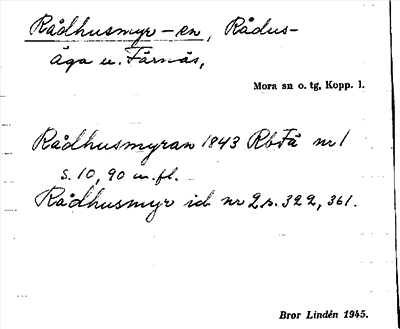 Rådhusmyr -en, Rådus-
äga u. Färnäs,
Mora sn o. tg, Kopp. l.
Rådhusmyran 1843 RbFä nr 1
s. 10, 90 m.fl.
Rådhusmyr id. nr 2 s. 322, 361.
Bror Lindén 1945.